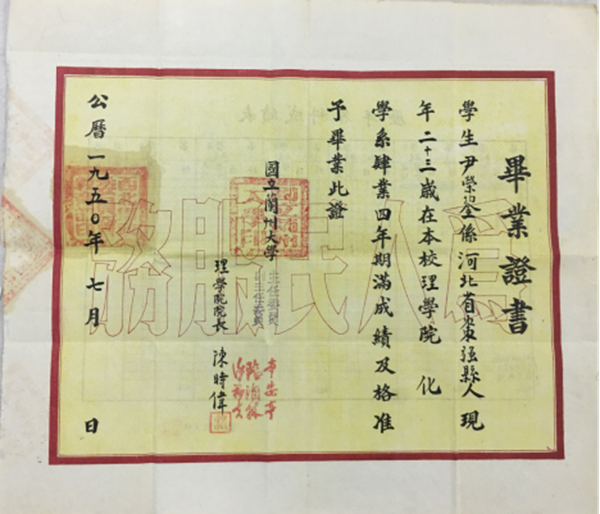 畢業證書
學生尹榮銮係河北省棗强縣人現
年二十三歲在本校理學院化
學系肄業四年期滿成績及格准
予畢業此證
國立蘭州大學
主任委員
副主任委員
理學院院長 陳時偉
公曆一九五〇年七月 日
為人民服務